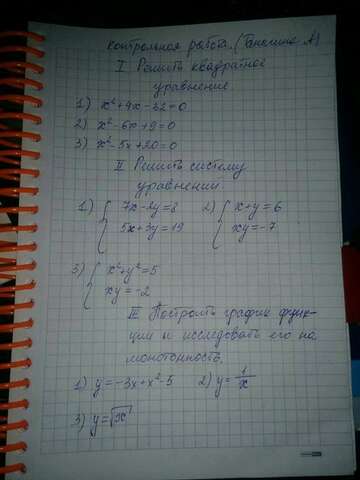 Контрольная работа. (Тансылпе А)
I Решить квадратное
уравнение
1) x²+4x-32=0
2) x²-6x+9=0
3) x²-5x+20=0
II Решить систему
уравнений.
1) { 7x-2y=8 2) { x+y=6
5x+3y=19 xy=-7
3) { x²+y²=5
xy=-2
III Построить график функ-
ции и исследовать его на
монотонность.
1) y=-3x+x²-5 2) y=1/x
3) y=√x